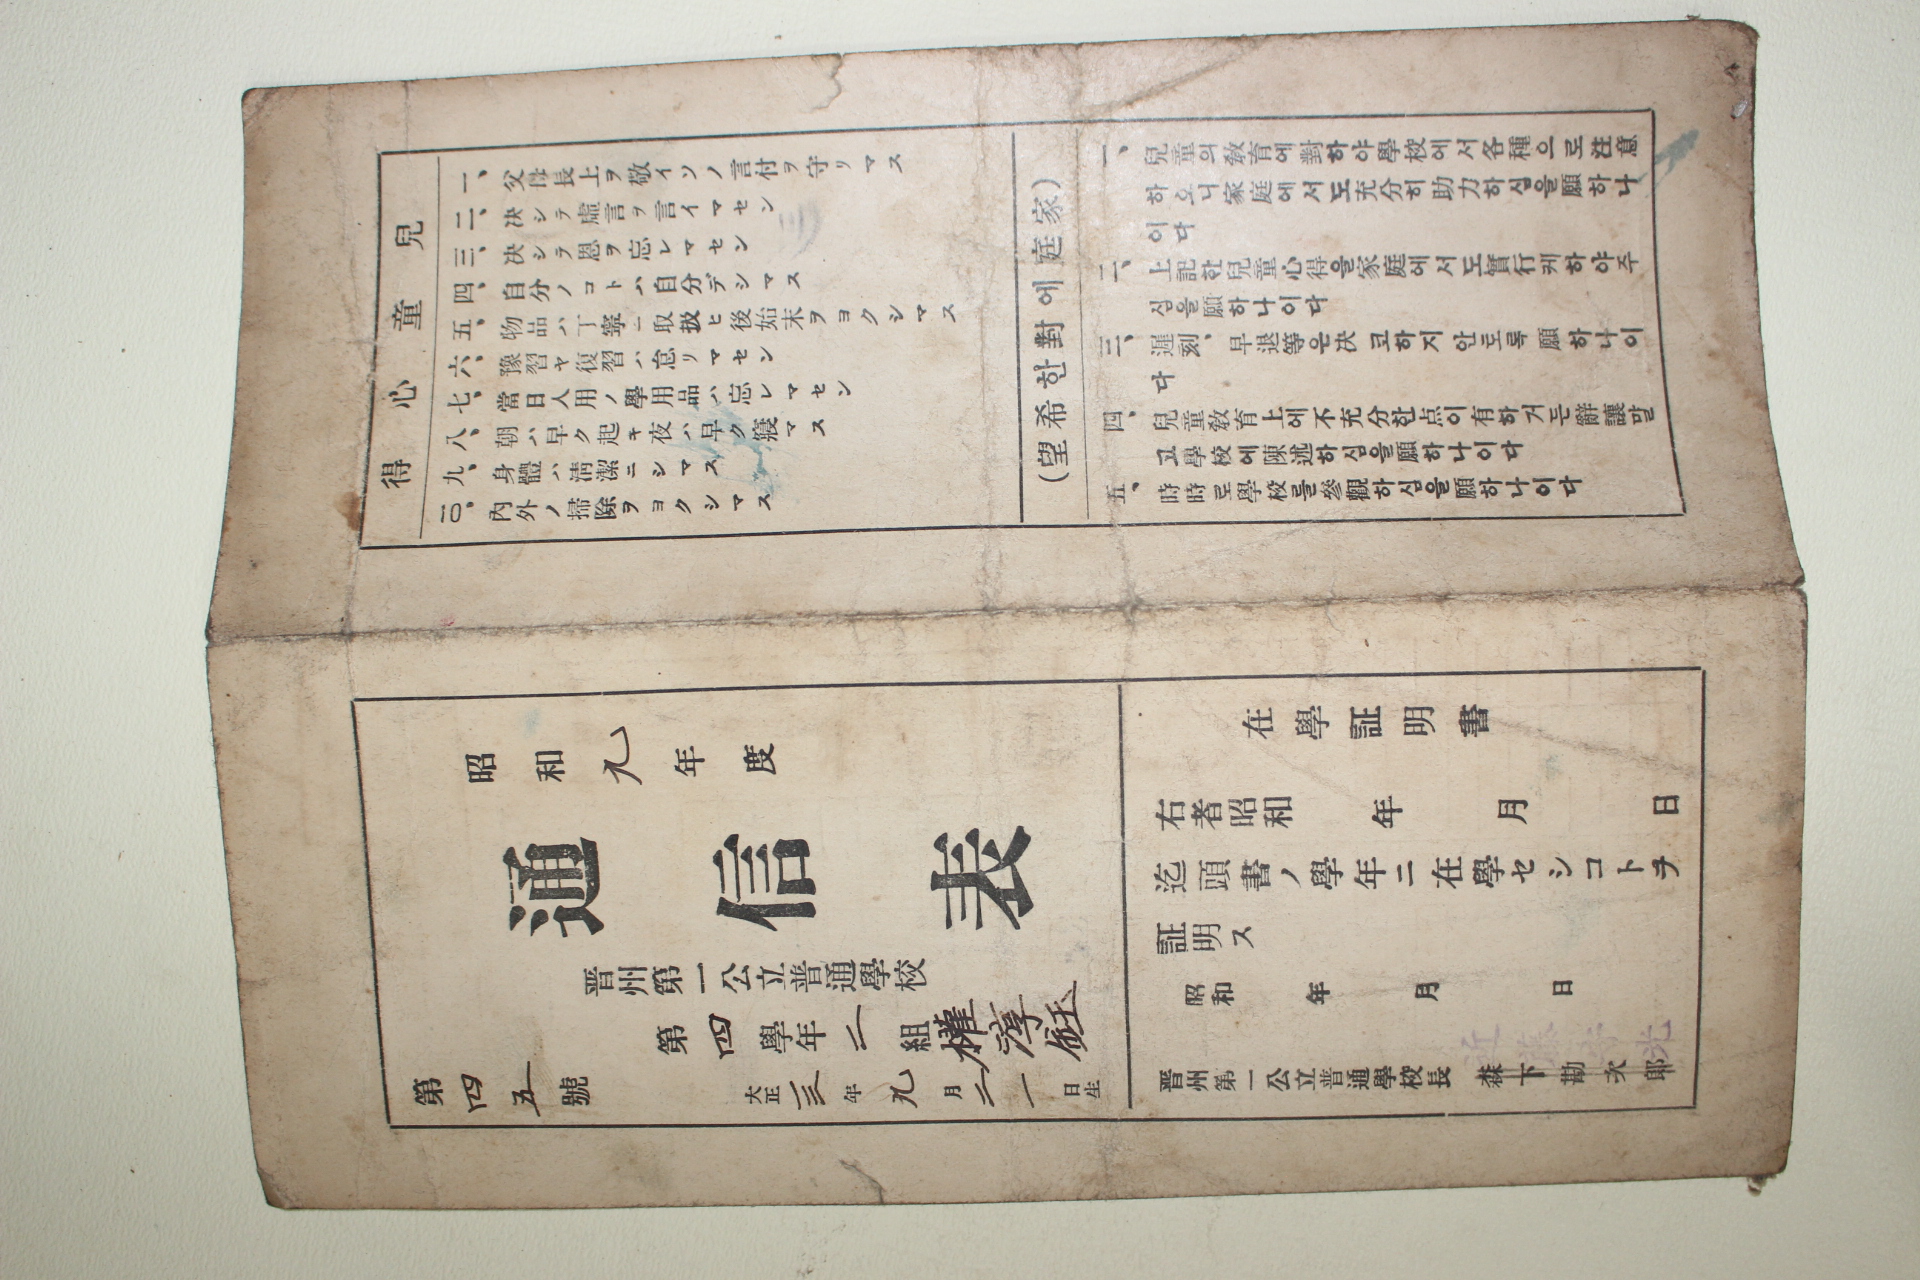 昭和九年度
通信表
晋州第一公立普通學校
第四學年二組
大正三年九月二一日生
第四五號
在學証明書
右者昭和 年 月 日
迄頭書ノ學年ニ在學セシコトヲ
証明ス
昭和 年 月 日
晋州第一公立普通學校長 森下勘次郎
兒童心得
一、父母長上ヲ敬イソノ言付ヲ守リマス
二、決シテ虛言ヲ言イマセン
三、決シテ恩ヲ忘レマセン
四、自分ノコトハ自分デシマス
五、物品ハ丁寧ニ取扱ヒ後始末ヲヨクシマス
六、豫習ヤ復習ハ怠リマセン
七、當日入用ノ學用品ハ忘レマセン
八、朝ハ早ク起キ夜ハ早ク寢マス
九、身體ハ淸潔ニシマス
一〇、內外ノ掃除ヲヨクシマス
(家庭에對한希望)
一、兒童의敎育에對하야學校에서各種으로注意
하오니家庭에서도充分히助力하심을願하나
이다
二、上記한兒童心得을家庭에서도實行케하야주
심을願하나이다
三、遲刻、早退等은决코하지안토록願하나이
다
四、兒童敎育上에不充分한点이有하거든辭讓말
고學校에陳述하심을願하나이다
五、時時로學校를參觀하심을願하나이다